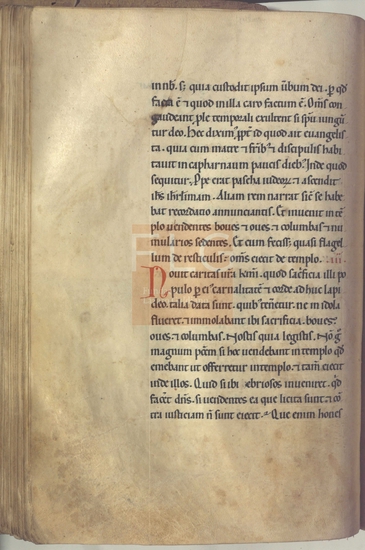 in nb̄. s; quia custodit ipsum ūbum dei. ꝑ qd̄
factā ē ⁊ quod in illa caro factum ē. Om̄s con
gaudeant ple temporali exultent si spū iungūt̄
tur deo. Hec dixim; ꝓpt̄ id quod ait euangelis
ta. quia cum matre ⁊ frib; ⁊ discipulis habi
tauit in capharnaum paucis dieb; Inde quod
sequitur. Ꝓpe erat pascha iudeoꝝ ⁊ ascendit
ihs̄ ihrl̄imam. Aliam rem narrat sic̄ se habe
bat recordatio annunciantis. Et inuenit in tē
plo uendentes boues ⁊ oues ⁊ columbas ⁊ nu
mularios sedentes. Et cum feciss; quasi flagel
lum de resticulis; om̄s eiecit de templo.
Nouit caritas ur̄a kr̄mi. quod sac̄ficia illi po
pulo ꝑ ei; carnalitatē ⁊ corde ad huc lapi
deo. talia data sunt. quib; tenet̄ur ne in idola
flueret ⁊ immolabant ibi sacrificia. boues.
oues ⁊ columbas. Nostis quia legistis. Nō g̊
magnum pcc̄m si hec uendebant in templo qd̄
emebant ut offerretur in templo ⁊ tam̄ eiecit
inde illos. Quid si ibi ebriosos inueniret. qd̄
facet̄ dn̄s. si uendentes ea que licita sunt ⁊ cō
tra iusticiam n̄ sunt eiecit. Que enim hones